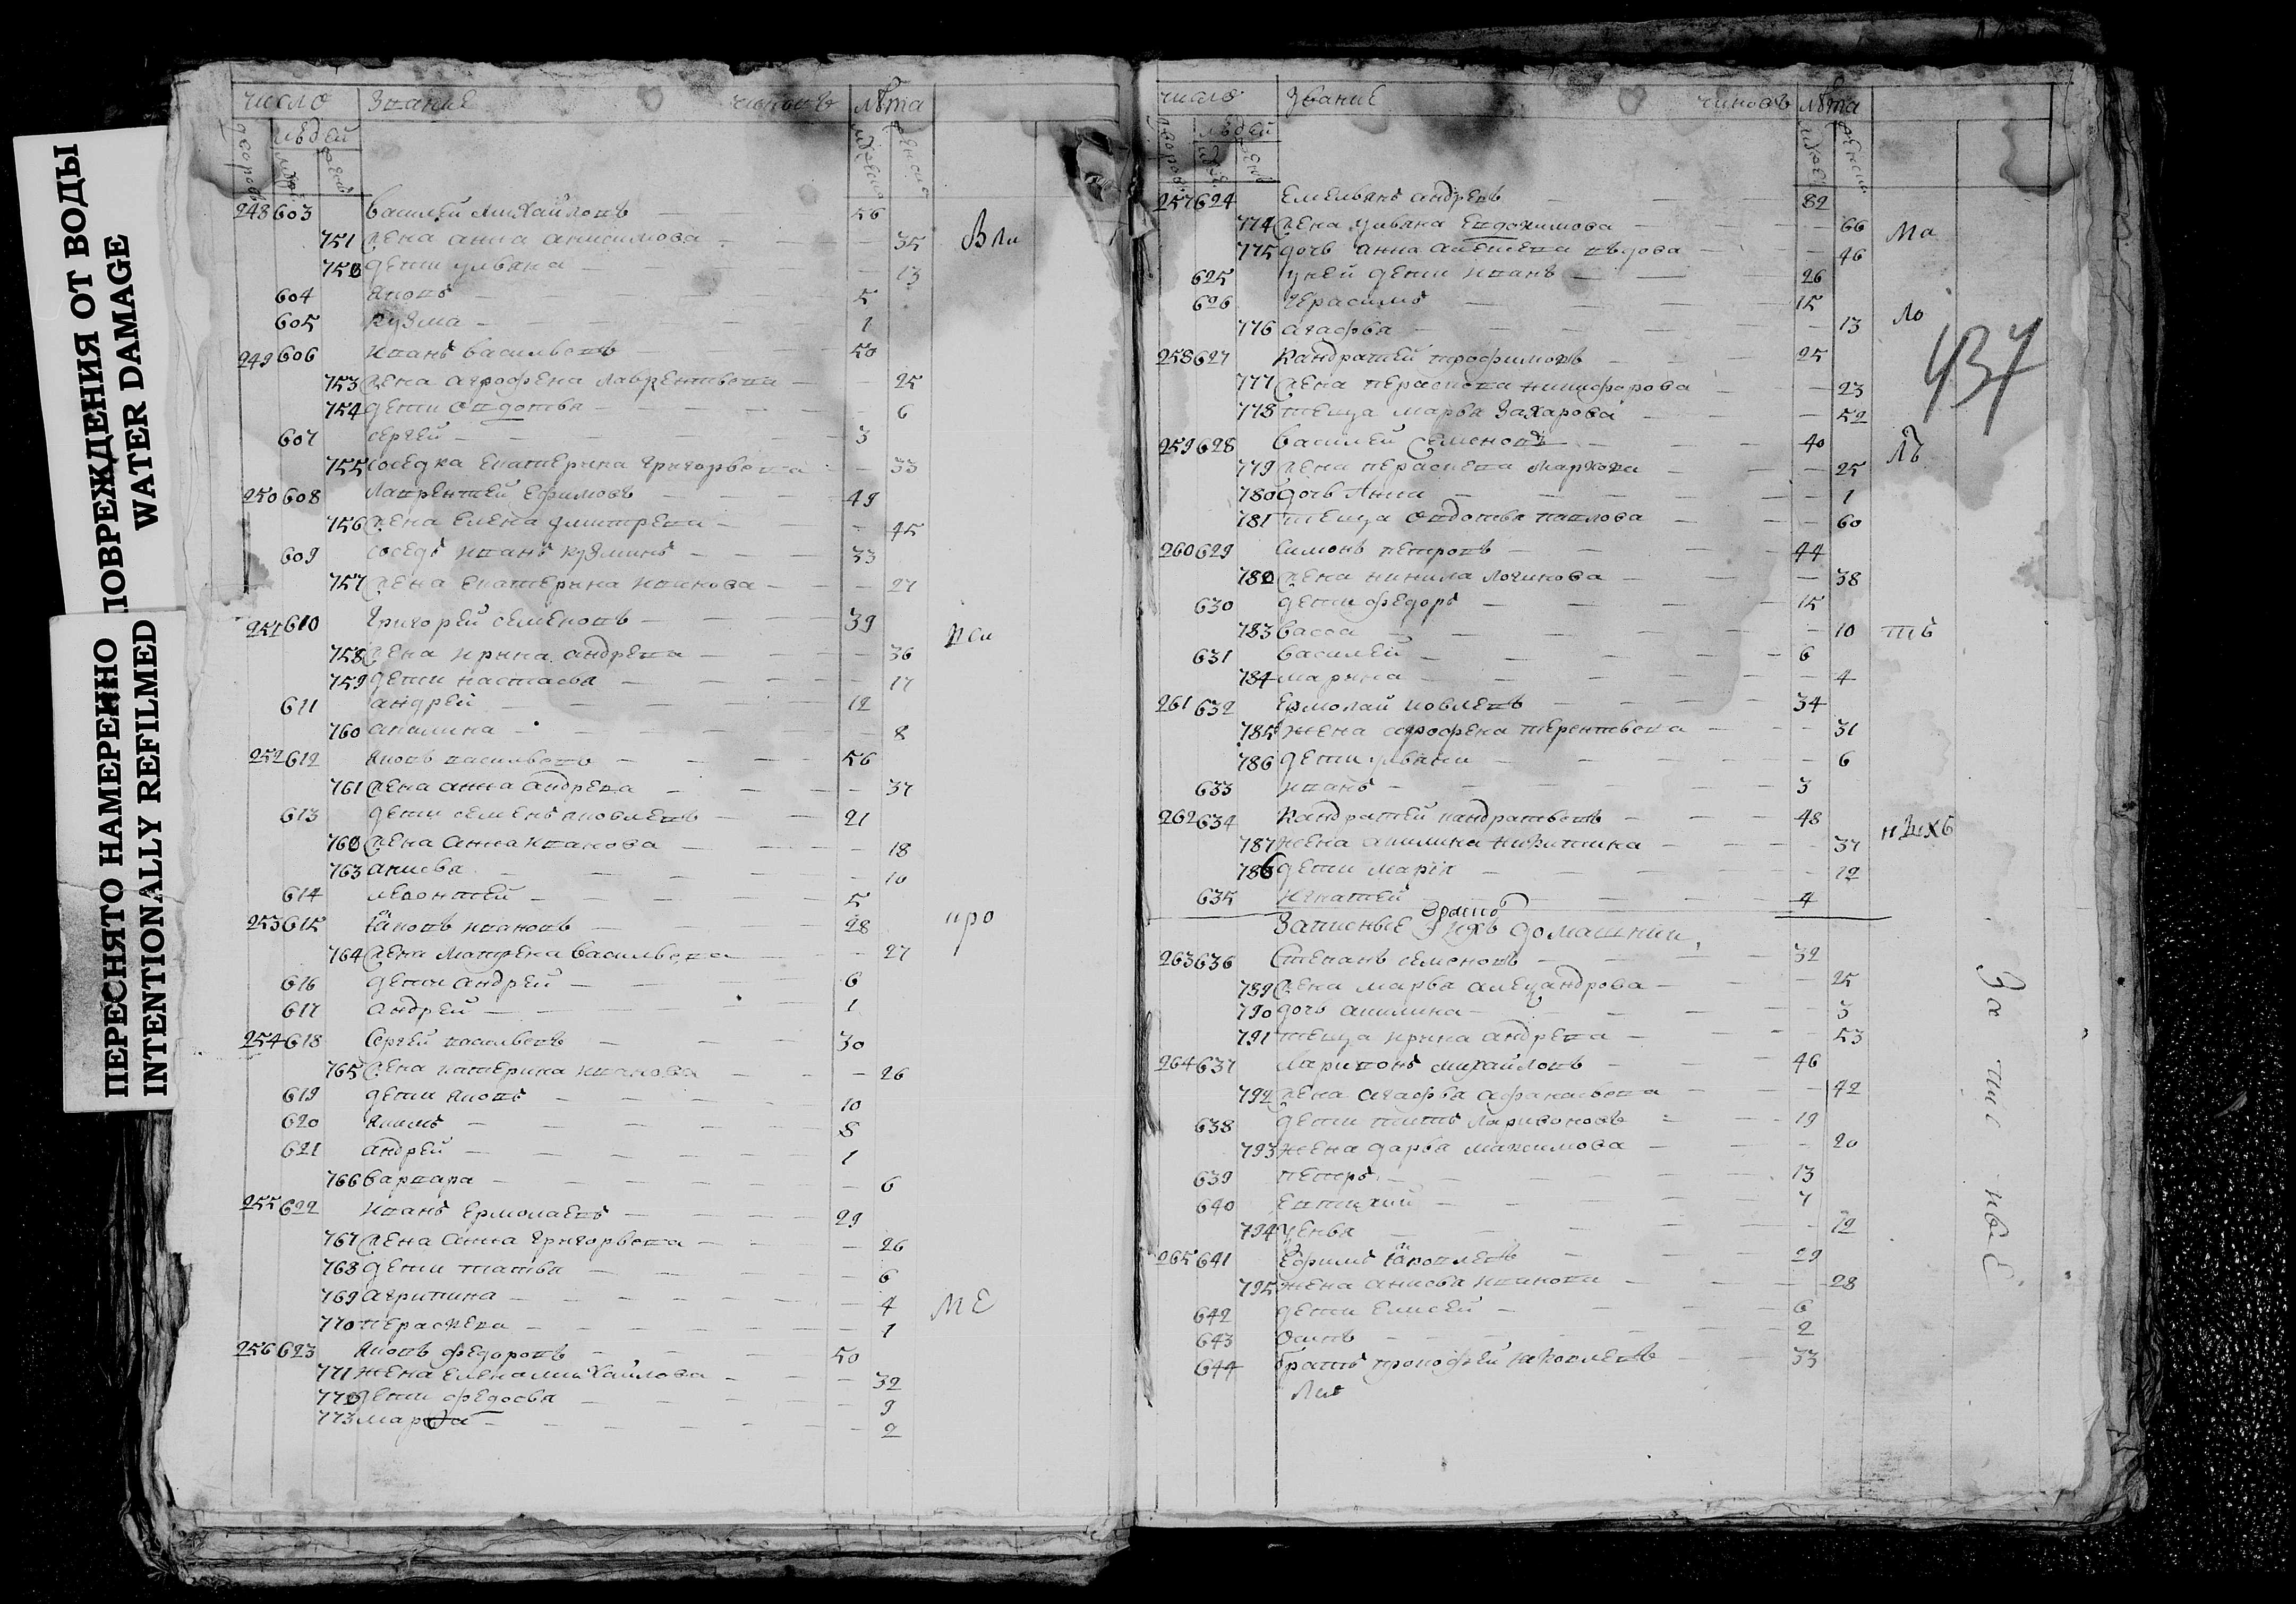 ПЕРЕСНЯТО НАМЕРЕННО ПОВРЕЖДЕНИЯ ОТ ВОДЫ
INTENTIONALLY REFILMED WATER DAMAGE
число Звание чиновъ лѣта
дворовъ людей
248 603 василей михайловъ 56
751 жена анна анисимова 35 Вла
752 дети ульяна 13
604 яковъ 5
605 кузма 1
249 606 иванъ васильевъ 50
753 жена агрофена лаврентьева 25
754 дети овдотья 6
607 сергей 3
755 соседка екатерина григорьева 33
250 608 лаврентей ефимовъ 49
756 жена елена дмитрева 45
609 соседъ иванъ кузминъ 33
757 жена екатерина иванова 27
251 610 григорей семеновъ 39
758 жена ирина андрева 36
759 дети настасья 17
611 андрей 12
760 акилина 8
252 612 яковъ васильевъ 56
761 жена анна андрева 37
613 дети семенъ яковлевъ 21
762 жена анна иванова 18
763 анисья 10
614 леонтей 5
253 615 яковъ ивановъ 28 про
764 жена матрена васильева 27
616 дети андрей 6
617 андрей 1
254 618 сергей васильевъ 30
765 жена катерина иванова 26
619 дети яковъ 10
620 якимъ 8
621 андрей 1
766 варвара 6
255 622 иванъ ермолаевъ 29
767 жена анна григорьева 26
768 дети татьяна 6
769 агрипина 4 ме
770 пераскева 1
256 623 яковъ федоровъ 50
771 жена елена михайлова 32
772 дети федосья 9
773 марфа 2
число Звание чиновъ лѣта
дворовъ людей
437
257 624 емельянъ андревъ 82
774 жена ульяна евдокимова 66 Ма
775 дочь анна алексева вдова 46
625 у ней дети иванъ 26
626 герасимъ 15
776 агафья 13 ло
258 627 кандратей трофимовъ 25
777 жена пераскева никифорова 23
778 теща марья захарова 52
259 628 василей семеновъ 40
779 жена пераскева маркова 25
780 дочь анна 1
781 теща овдотья павлова 60
260 629 симонъ петровъ 44
782 жена ненила логинова 38
630 дети федоръ 15
783 васса 10
631 василей 6
784 марина 4
261 632 ермолай иовлевъ 34
785 жена агрофена терентьева 31
786 дети ульяна 6
633 иванъ 3
262 634 кандратей кандратьевъ 48
787 жена акилина никитина 37
788 дети мария 12
635 игнатей 4
Записные и ихъ домашнии
263 636 степанъ семеновъ 32
789 жена марья александрова 25
790 дочь акилина 3
791 теща ирина андрева 53
264 637 ларивонъ михайловъ 46
792 жена агафья афанасьева 42
638 дети титъ ларивоновъ 19
793 жена дарья максимова 20
639 петръ 13
640 евтихий 7
794 12
265 641 ефимъ яковлевъ 29
795 жена анисья иванова 28
642 дети елисей 6
643 осипъ 2
644 братъ прокофей яковлевъ 33